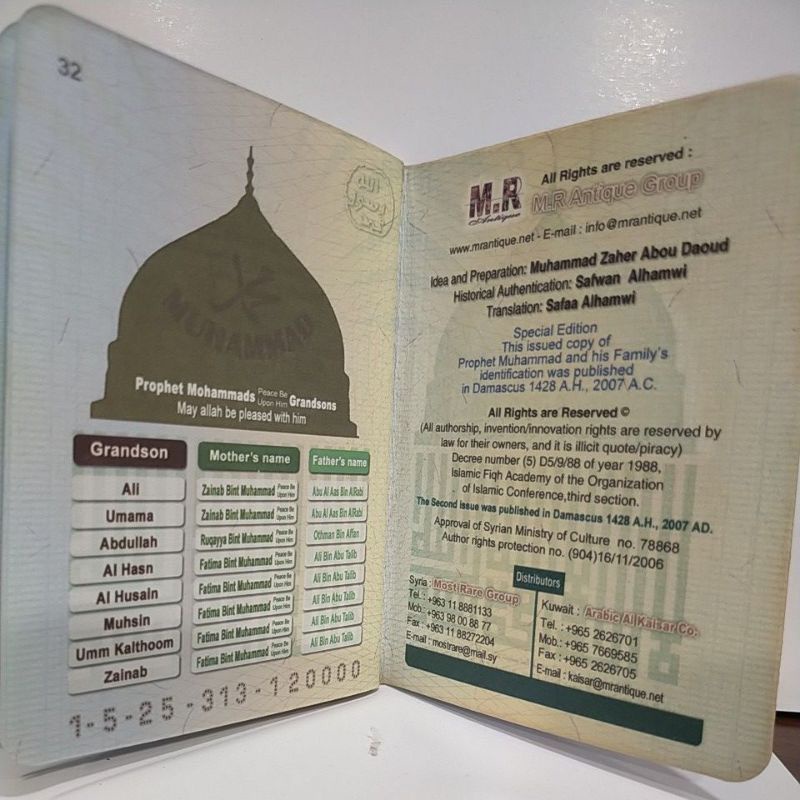 32
الله
رسول
محمد
MUHAMMAD
Prophet Mohammads Peace Be Upon Him Grandsons
May allah be pleased with him
Grandson Mother's name Father's name
Ali Zainab Bint Muhammad Peace Be Upon Him Abu Al Aas Bin AlRabi
Umama Zainab Bint Muhammad Peace Be Upon Him Abu Al Aas Bin AlRabi
Abdullah Ruqayya Bint Muhammad Peace Be Upon Him Othman Bin Affan
Al Hasn Fatima Bint Muhammad Peace Be Upon Him Ali Bin Abu Talib
Al Husain Fatima Bint Muhammad Peace Be Upon Him Ali Bin Abu Talib
Muhsin Fatima Bint Muhammad Peace Be Upon Him Ali Bin Abu Talib
Umm Kalthoom Fatima Bint Muhammad Peace Be Upon Him Ali Bin Abu Talib
Zainab Fatima Bint Muhammad Peace Be Upon Him Ali Bin Abu Talib
1-5-25-313-120000
M.R
Antique
All Rights are reserved :
M.R Antique Group
www.mrantique.net - E-mail : info@mrantique.net
Idea and Preparation: Muhammad Zaher Abou Daoud
Historical Authentication: Safwan Alhamwi
Translation: Safaa Alhamwi
Special Edition
This issued copy of
Prophet Muhammad and his Family's
identification was published
in Damascus 1428 A.H., 2007 A.C.
All Rights are Reserved ©
(All authorship, invention/innovation rights are reserved by
law for their owners, and it is illicit quote/piracy)
Decree number (5) D5/9/88 of year 1988,
Islamic Fiqh Academy of the Organization
of Islamic Conference,third section.
The Second issue was published in Damascus 1428 A.H., 2007 AD.
Approval of Syrian Ministry of Culture no. 78868
Author rights protection no. (904)16/11/2006
Distributors
Syria : Most Rare Group
Tel. : +963 11 8881133
Mob.: +963 98 00 88 77
Fax : +963 11 88272204
E-mail : mostrare@mail.sy
Kuwait : Arabic Al Kaisar Co.
Tel. : +965 2626701
Mob.: +965 7669585
Fax : +965 2626705
E-mail : kaisar@mrantique.net